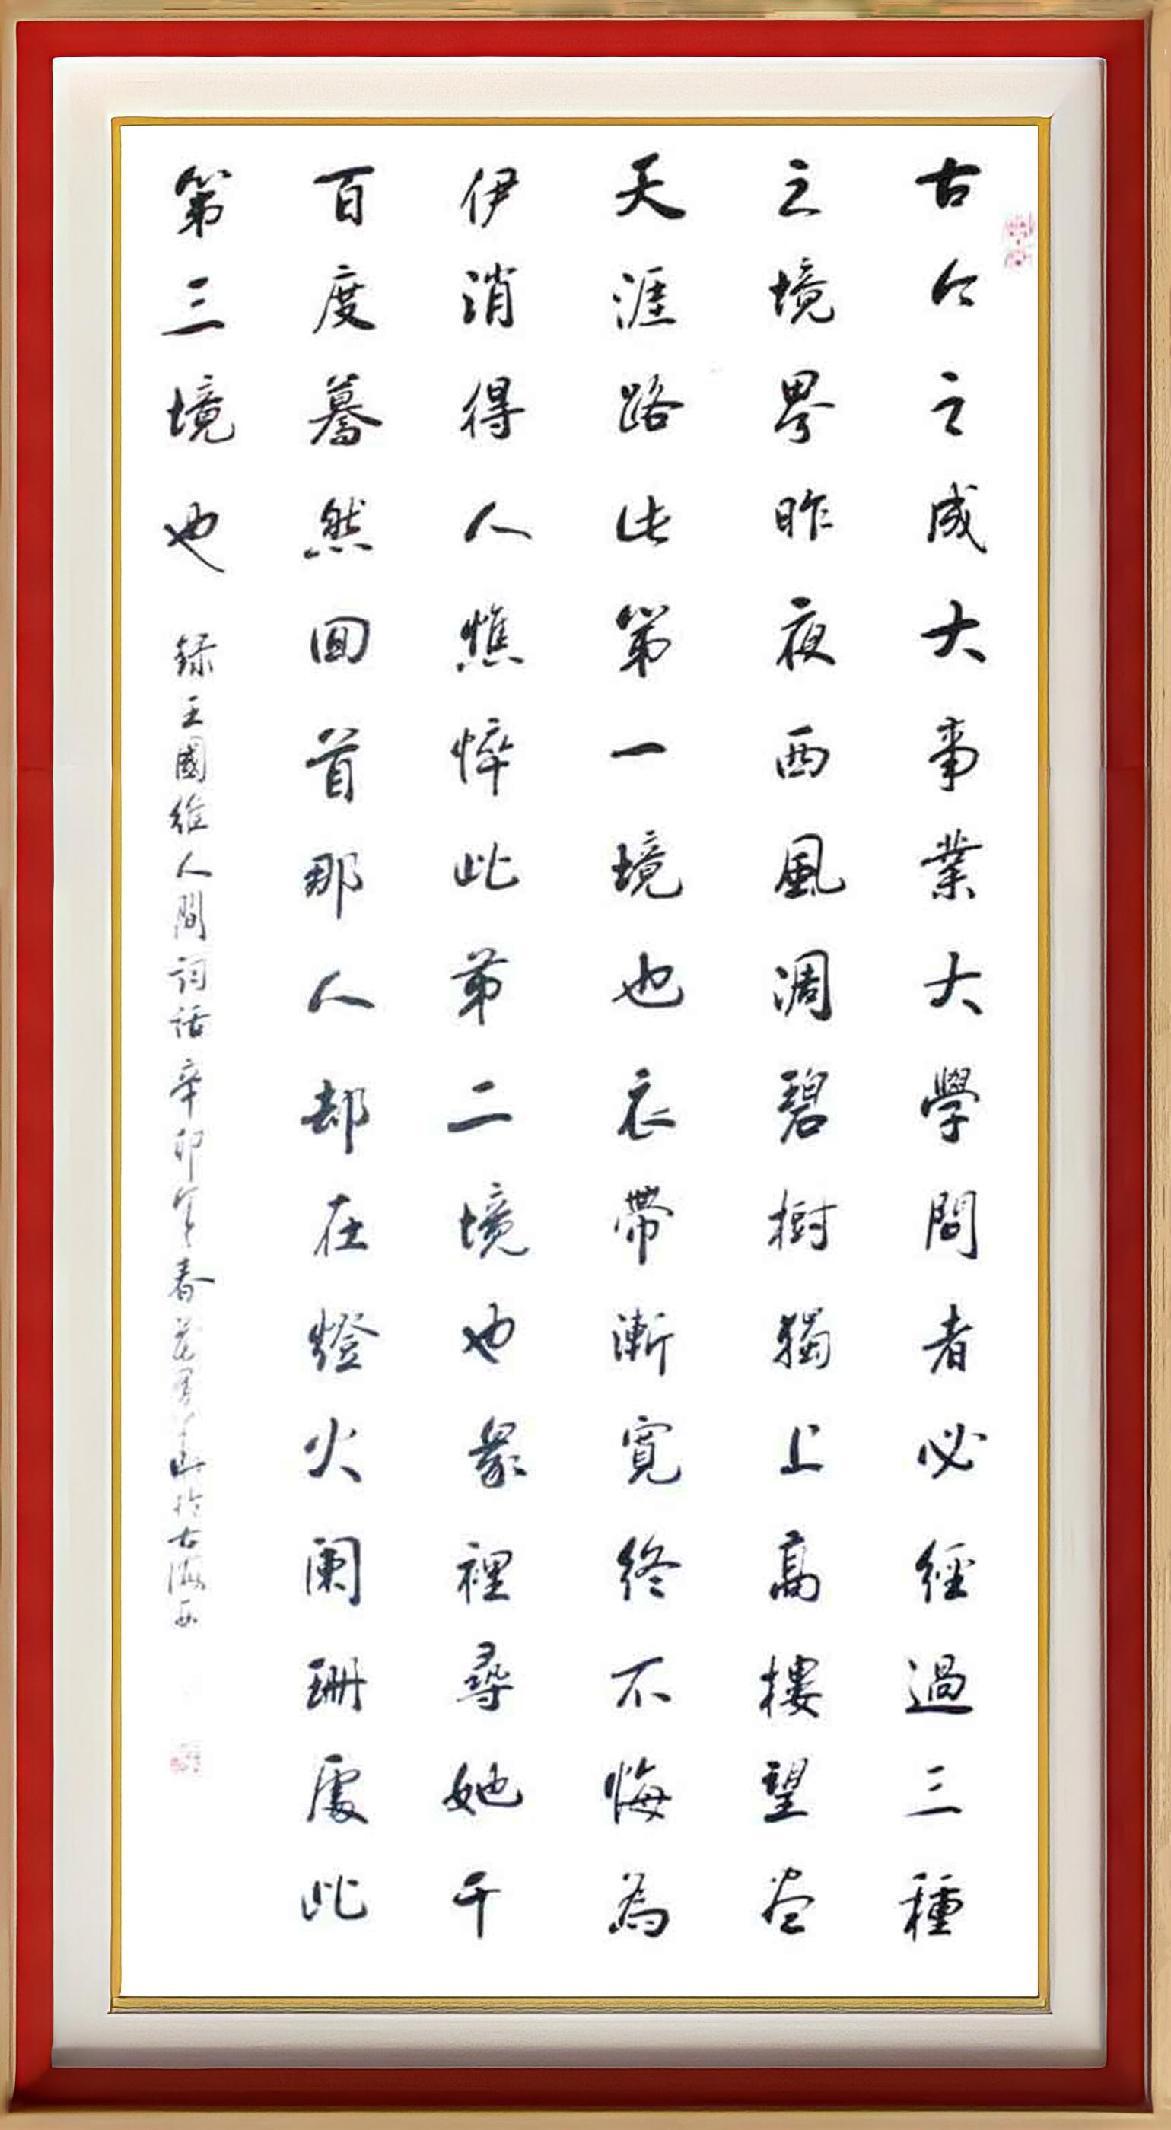 古今之成大事業大學問者必經過三種
之境界昨夜西風凋碧樹獨上高樓望盡
天涯路此第一境也衣帶漸寬終不悔為
伊消得人憔悴此第二境也眾裡尋她千
百度驀然回首那人却在燈火闌珊處此
第三境也
録王國維人間詞話辛卯年春於古海西